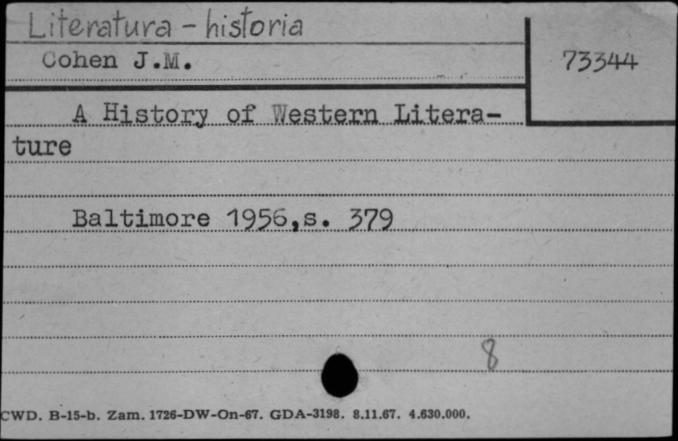 Literatura - historia
Cohen J.M.
73344
A History of Western Litera-
ture
Baltimore 1956,s. 379
8
CWD. B-15-b. Zam. 1726-DW-On-67. GDA-3198. 8.11.67. 4.630.000.